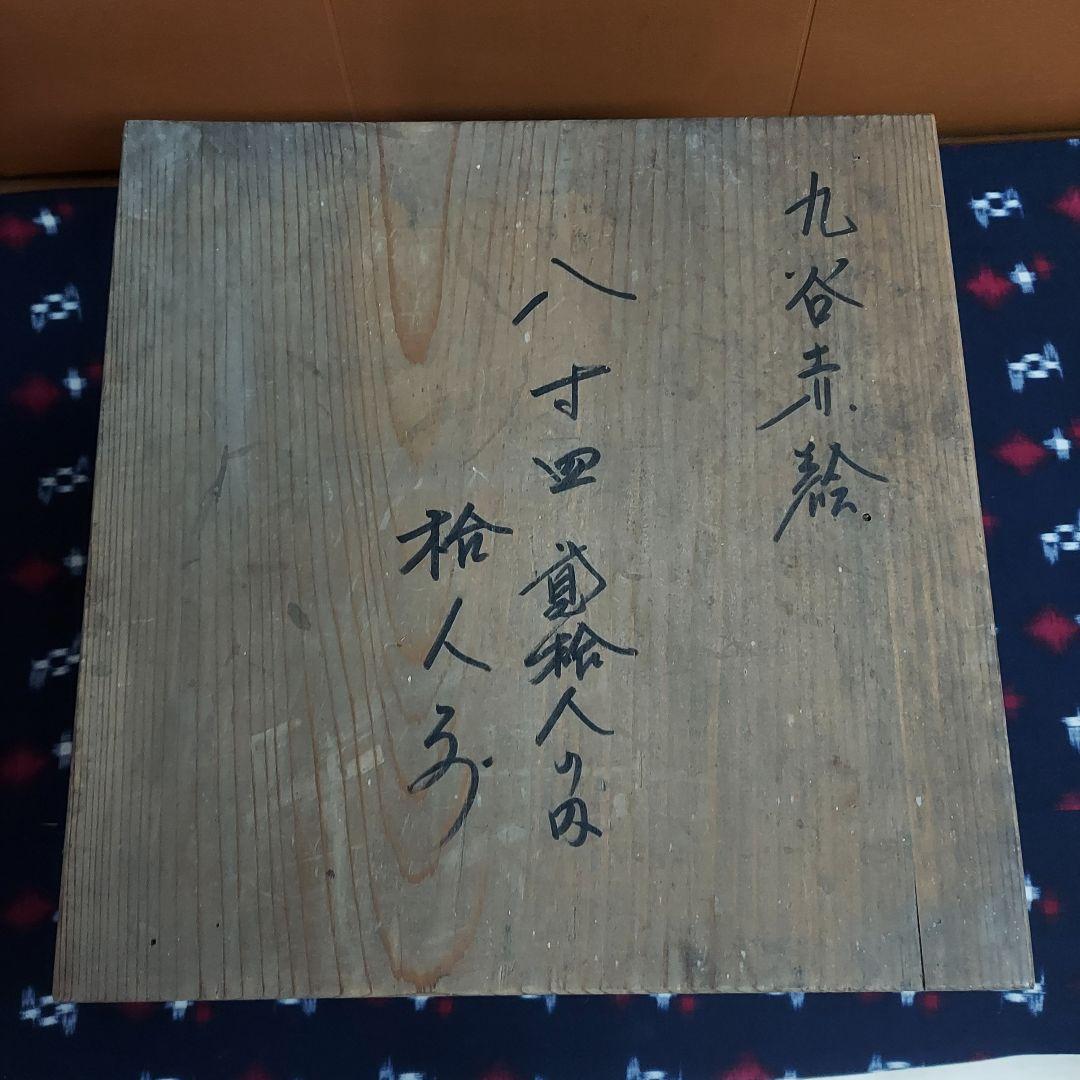 九谷赤繪
八寸皿 貳拾人ノ内
拾人前